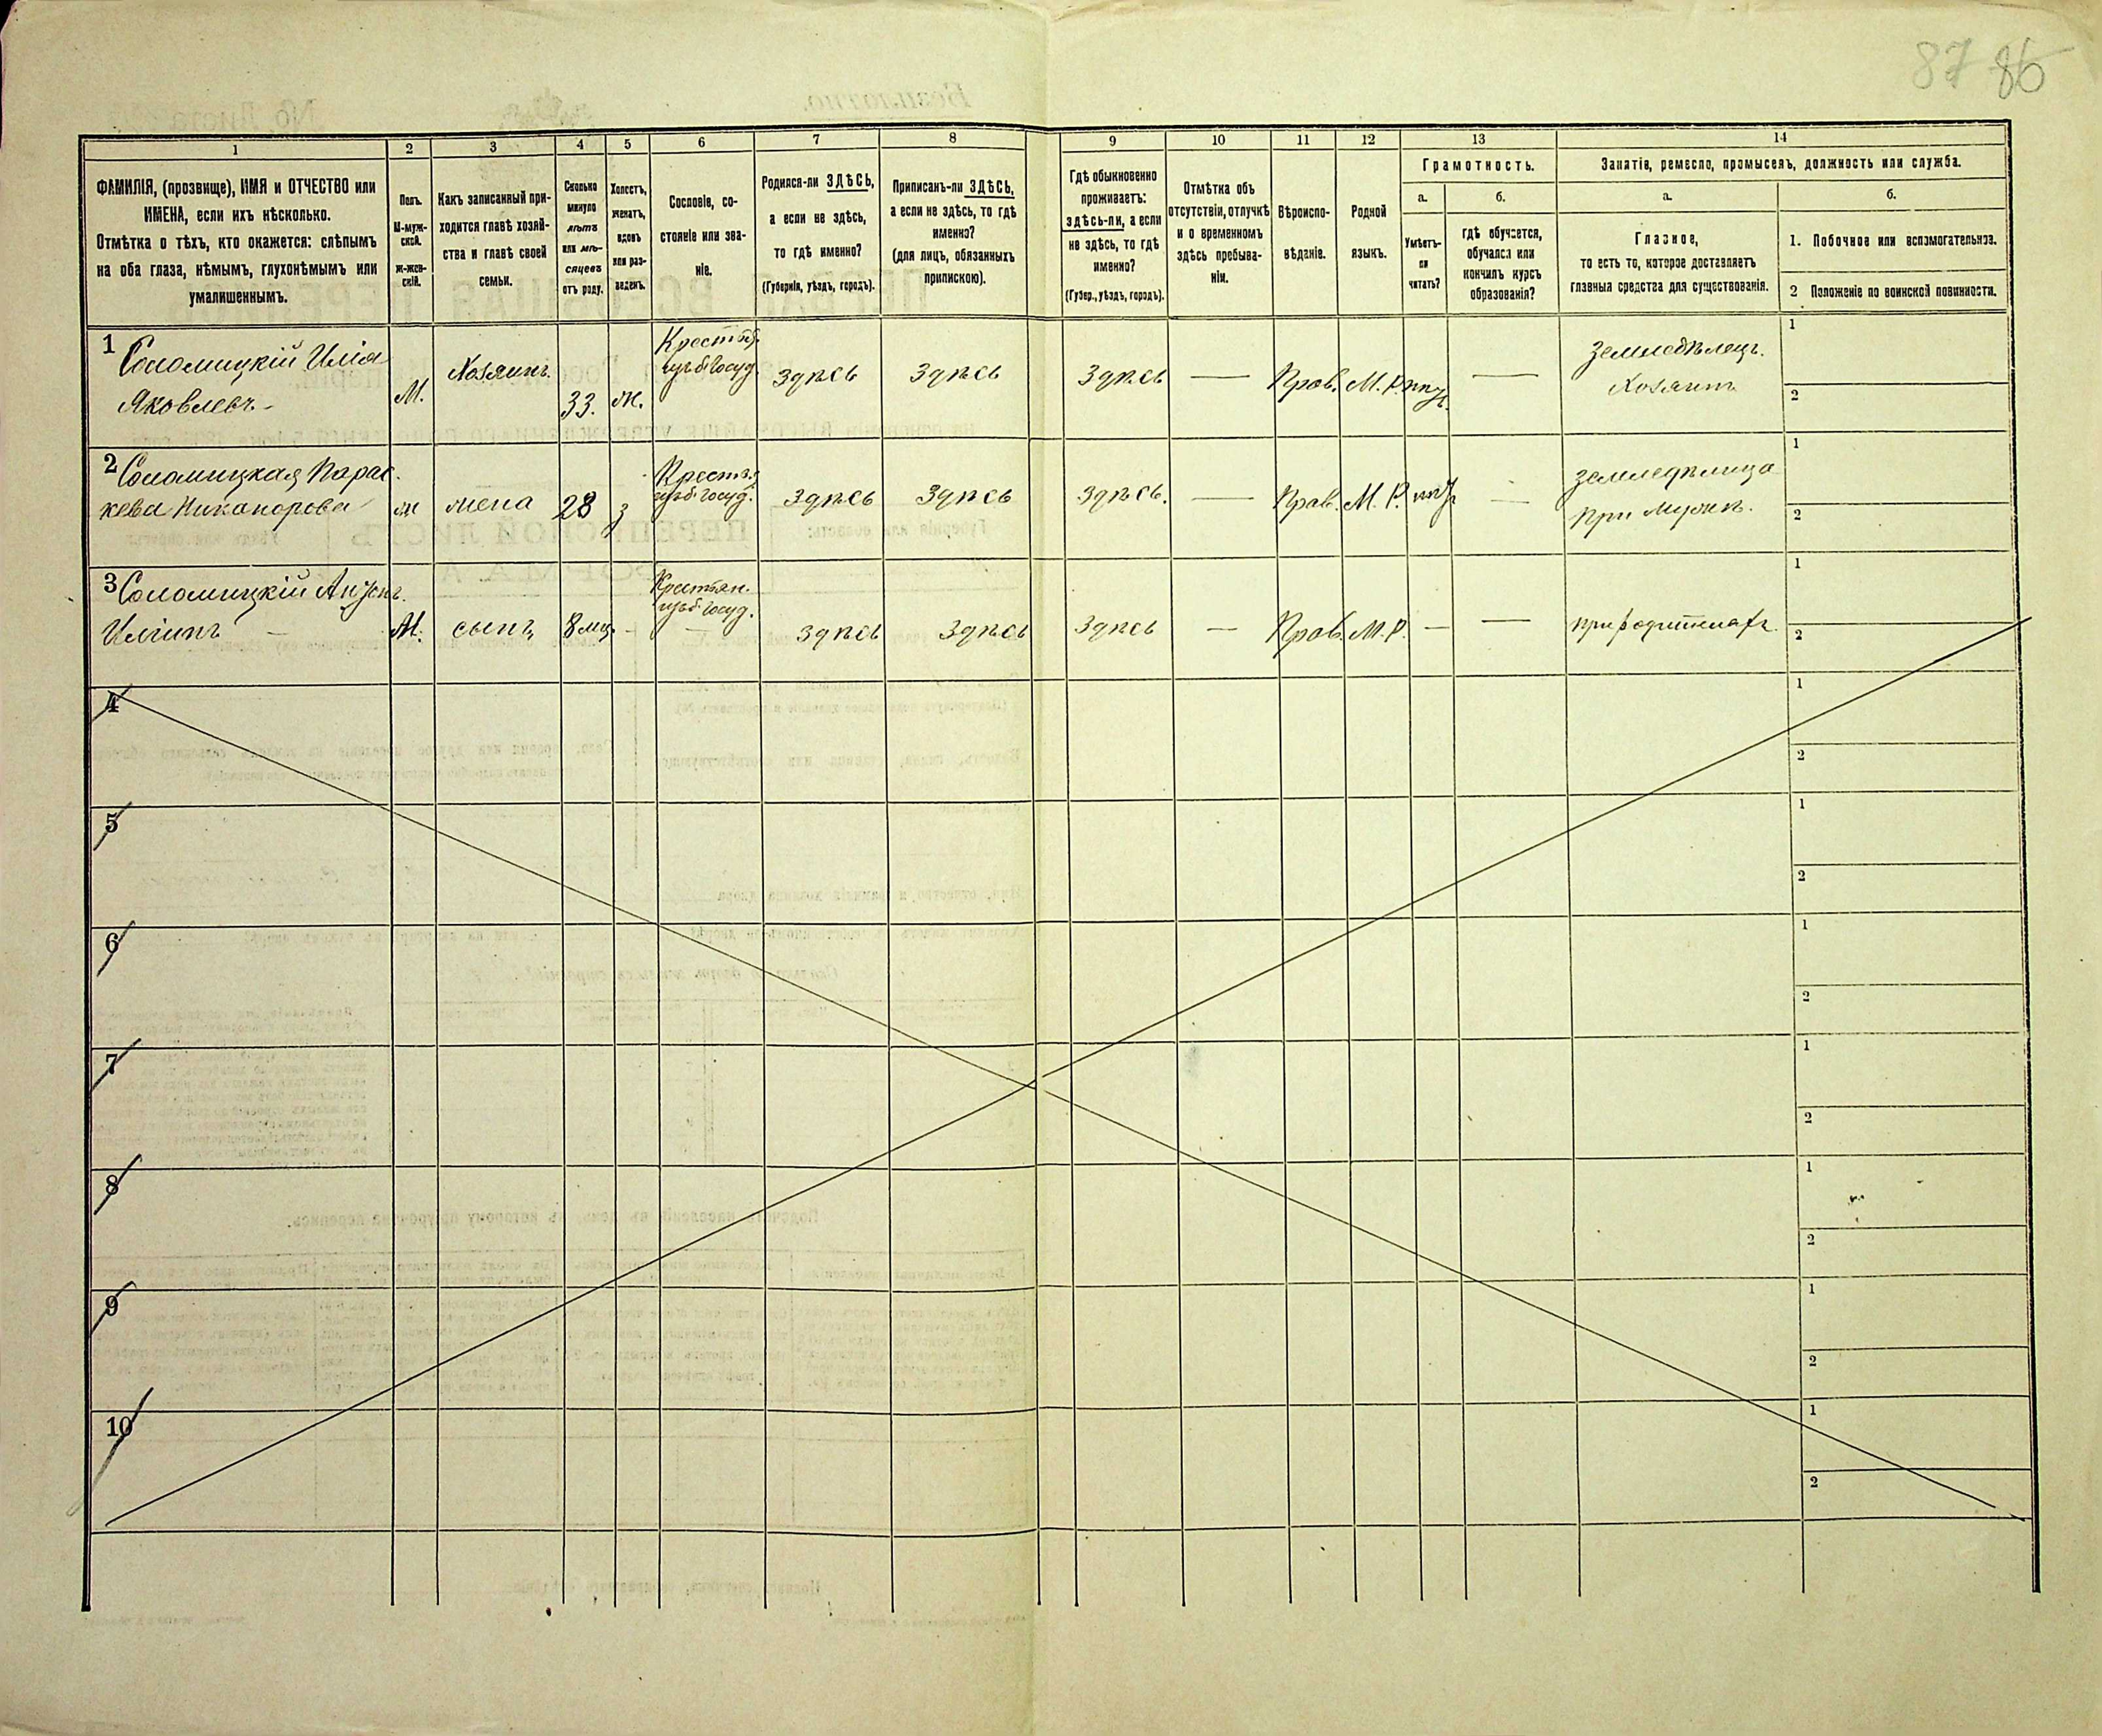 87 86
1
2
3
4
5
6
7
8
9
10
11
12
13
14
ФАМИЛІЯ, (прозвище), ИМЯ и ОТЧЕСТВО или
ИМЕНА, если ихъ нѣсколько.
Отмѣтка о тѣхъ, кто окажется: слѣпымъ
на оба глаза, нѣмымъ, глухонѣмымъ или
умалишеннымъ.
Полъ.
М-муж-
ской.
Ж-жен-
скій.
Какъ записанный при-
ходится главѣ хозяй-
ства и главѣ своей
семьи.
Сколько
минуло
лѣтъ
или мѣ-
сяцевъ
отъ роду.
Холостъ,
женатъ,
вдовъ
или раз-
веденъ.
Сословіе, со-
стояніе или зва-
ніе.
Родился-ли ЗДѢСЬ,
а если не здѣсь,
то гдѣ именно?
(Губернія, уѣздъ, городъ).
Приписанъ-ли ЗДѢСЬ,
а если не здѣсь, то гдѣ
именно?
(для лицъ, обязанныхъ
припискою).
Гдѣ обыкновенно
проживаетъ:
здѣсь-ли, а если
не здѣсь, то гдѣ
именно?
(Губер., уѣздъ, городъ).
Отмѣтка объ
отсутствіи, отлучкѣ
и о временномъ
здѣсь пребыва-
ніи.
Вѣроиспо-
вѣданіе.
Родной
языкъ.
Грамотность.
а.
б.
Умѣетъ-
ли
читать?
гдѣ обучается,
обучался или
кончилъ курсъ
образованія?
Занятія, ремесло, промыселъ, должность или служба.
а.
б.
Главное,
то есть то, которое доставляетъ
главныя средства для существованія.
1. Побочное или вспомогательное.
2 Положеніе по воинской повинности.
1 Соломицкій Илія
Яковлевъ
М.
Хозяинъ
33.
ж.
здѣсь
здѣсь
здѣсь
—
Прав.
М. Р.
—
Земледѣлецъ.
Хозяинъ
1
2
2 Соломицкая Парас
кева Никанорова
ж
жена
28
з
здѣсь
здѣсь
здѣсь.
—
Прав.
М. Р.
—
земледѣлица
при мужѣ.
1
2
3 Соломицкій Антонъ
Иліинъ —
М.
сынъ
8 мц.
-
Крестьян.
изъ б. госуд.
здѣсь
здѣсь
здѣсь
—
Прав.
М. Р.
—
—
при родителяхъ.
1
2
4
1
2
5
1
2
6
1
2
7
1
2
8
1
2
9
1
2
10
1
2